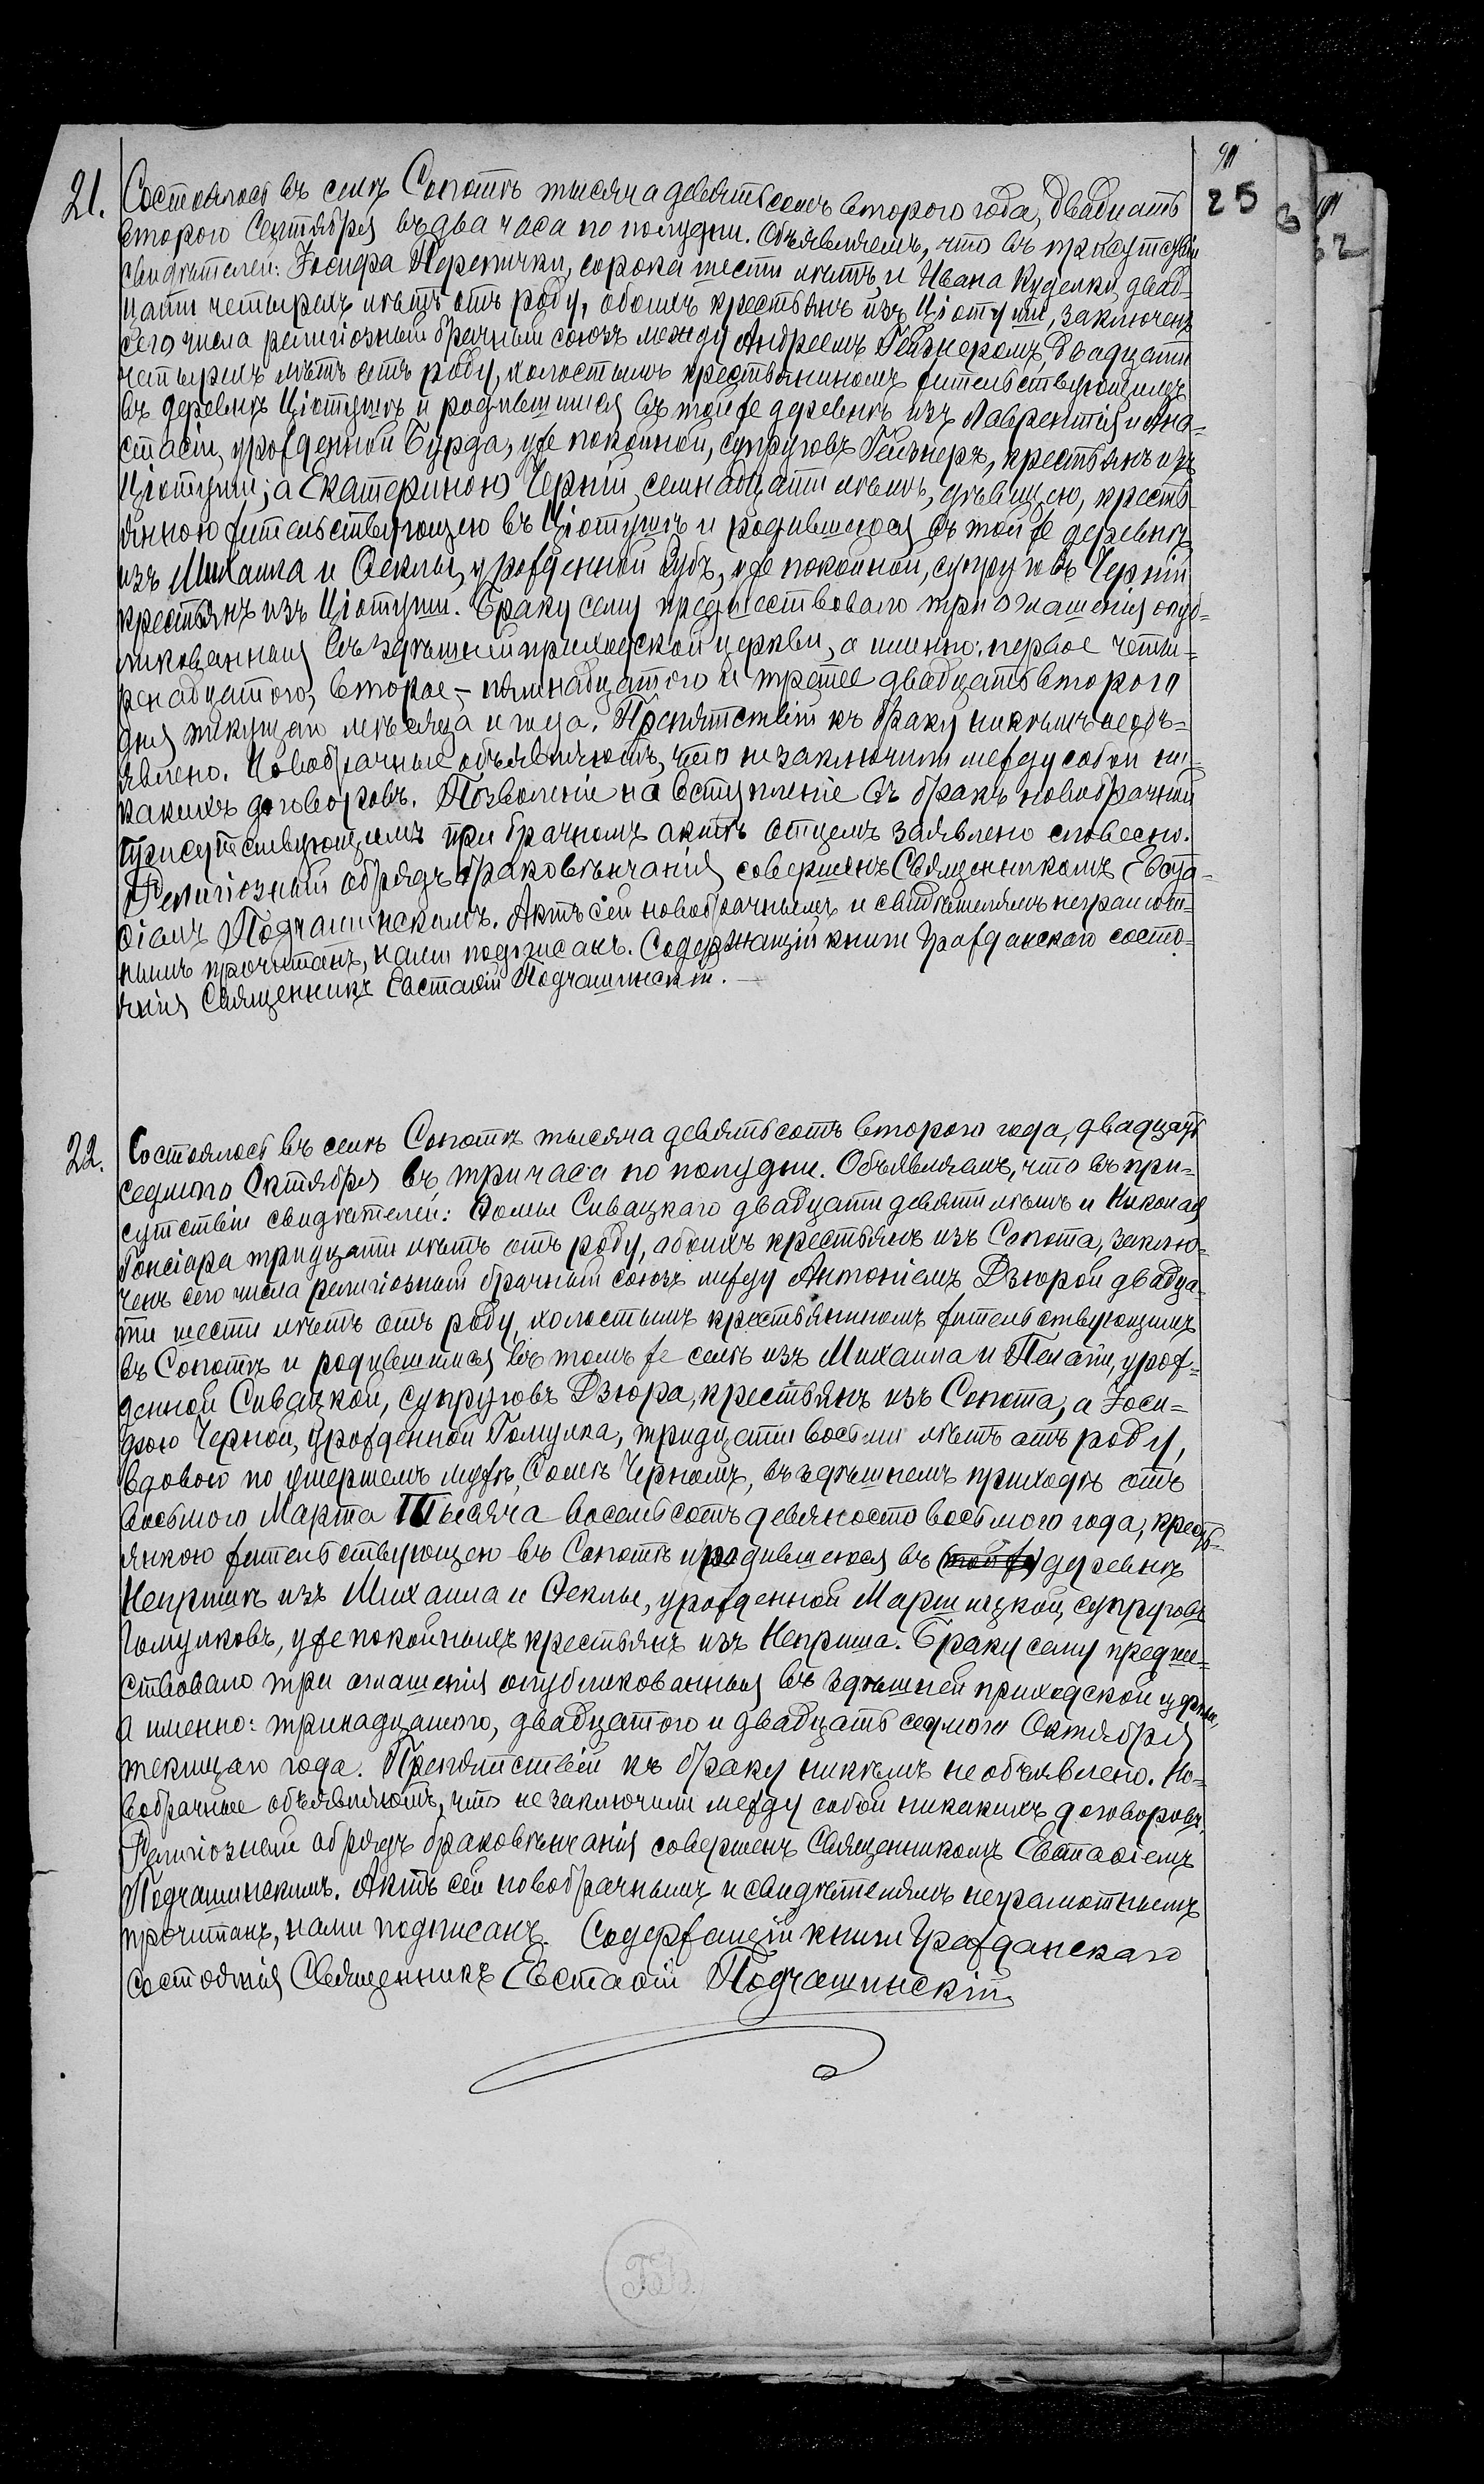 25
21. Состоялось въ селѣ Сопотѣ тысяча девятьсотъ второго года, двадцать
второго Сентября въ два часа по полудни. Объявляемъ, что въ присутствіи
свидѣтелей: Іосифа Перепички, сорока шести лѣтъ, и Ивана Куделки, двад-
цати четырехъ лѣтъ отъ роду, обоихъ крестьянъ изъ Ціотуши, заключенъ
сего числа религіозный брачный союзъ между Андреемъ Гейзнеромъ, двадцати
четырехъ лѣтъ отъ роду, холостымъ крестьяниномъ жительствующимъ
въ деревнѣ Ціотушѣ и родившимся въ той же деревнѣ изъ Лаврентія и Ана-
стасіи, урожденной Бурда, уже покойной, супруговъ Гейзнеръ, крестьянъ изъ
Ціотуши; а Екатериною Черній, семнадцати лѣтъ, дѣвицею, кресть-
янкою жительствующею въ Ціотушѣ и родившеюся въ той же деревнѣ
изъ Михаила и Феклы, урожденной Зубъ, уже покойной, супруговъ Черній
крестьянъ изъ Ціотуши. Браку сему предшествовало три оглашенія опуб-
ликованныя въ здѣшней приходской церкви, а именно: первое четы-
ренадцатого, второе - пятнадцатого и третее двадцать второго
дня текущаго мѣсяца и года. Препятствій къ браку никѣмъ необъ-
явлено. Новобрачные объявляютъ, что незаключили между собой ни-
какихъ договоровъ. Позволеніе на вступленіе въ бракъ новобрачной
присутствующимъ при брачномъ актѣ отцемъ заявлено словесно.
Религіозный обрядъ браковѣнчанія совершенъ Священникомъ Евста-
фіемъ Подчашинскимъ. Актъ сей новобрачнымъ и свидѣтелямъ неграмот-
нымъ прочитанъ, нами подписанъ. Содержащій книги Гражданскаго состо-
янія Священникъ Евстафій Подчашинскій.
22. Состоялось въ селѣ Сопотѣ тысяча девятьсотъ второго года, двадцать
седмого Октября въ три часа по полудни. Объявляемъ, что въ при-
сутствіи свидѣтелей: Фомы Сивацкаго двадцати девяти лѣтъ и Николая
Гонсіара тридцати лѣтъ отъ роду, обоихъ крестьянъ изъ Сопота, заклю-
ченъ сего числа религіозный брачный союзъ между Антоніемъ Дзюрой двадца-
ти шести лѣтъ отъ роду, холостымъ крестьяниномъ жительствующимъ
въ Сопотѣ и родившимся въ томъ же селѣ изъ Михаила и Пелагіи, урож-
денной Сивацкой, супруговъ Дзюра, крестьянъ изъ Сопота, а Іоси-
фою Черной, урожденной Гомулка, тридцати восьми лѣтъ отъ роду,
вдовою по умершемъ мужѣ, Черномъ, въ здѣшнемъ приходѣ отъ
восьмого Марта тысяча восемьсотъ девяносто восьмого года, кресть-
янкою жительствующею въ Сопотѣ и родившеюся въ (той же) деревнѣ
Непришѣ изъ Михаила и Феклы, урожденной Маршицкой, супруговъ
Гомулковъ, уже покойныхъ крестьянъ изъ Неприша. Браку сему предше-
ствовало три оглашенія опубликованныя въ здѣшней приходской церкви,
а именно: тринадцатого, двадцатого и двадцать седмого Октября
текущаго года. Препятствій къ браку никѣмъ необъявлено. Но-
вобрачные объявляютъ, что незаключили между собой никакихъ договоровъ.
Религіозный обрядъ браковѣнчанія совершенъ Священникомъ Евстафіемъ
Подчашинскимъ. Актъ сей новобрачнымъ и свидѣтелямъ неграмотнымъ
прочитанъ, нами подписанъ. Содержащій книги Гражданскаго
состоянія Священникъ Евстафій Подчашинскій